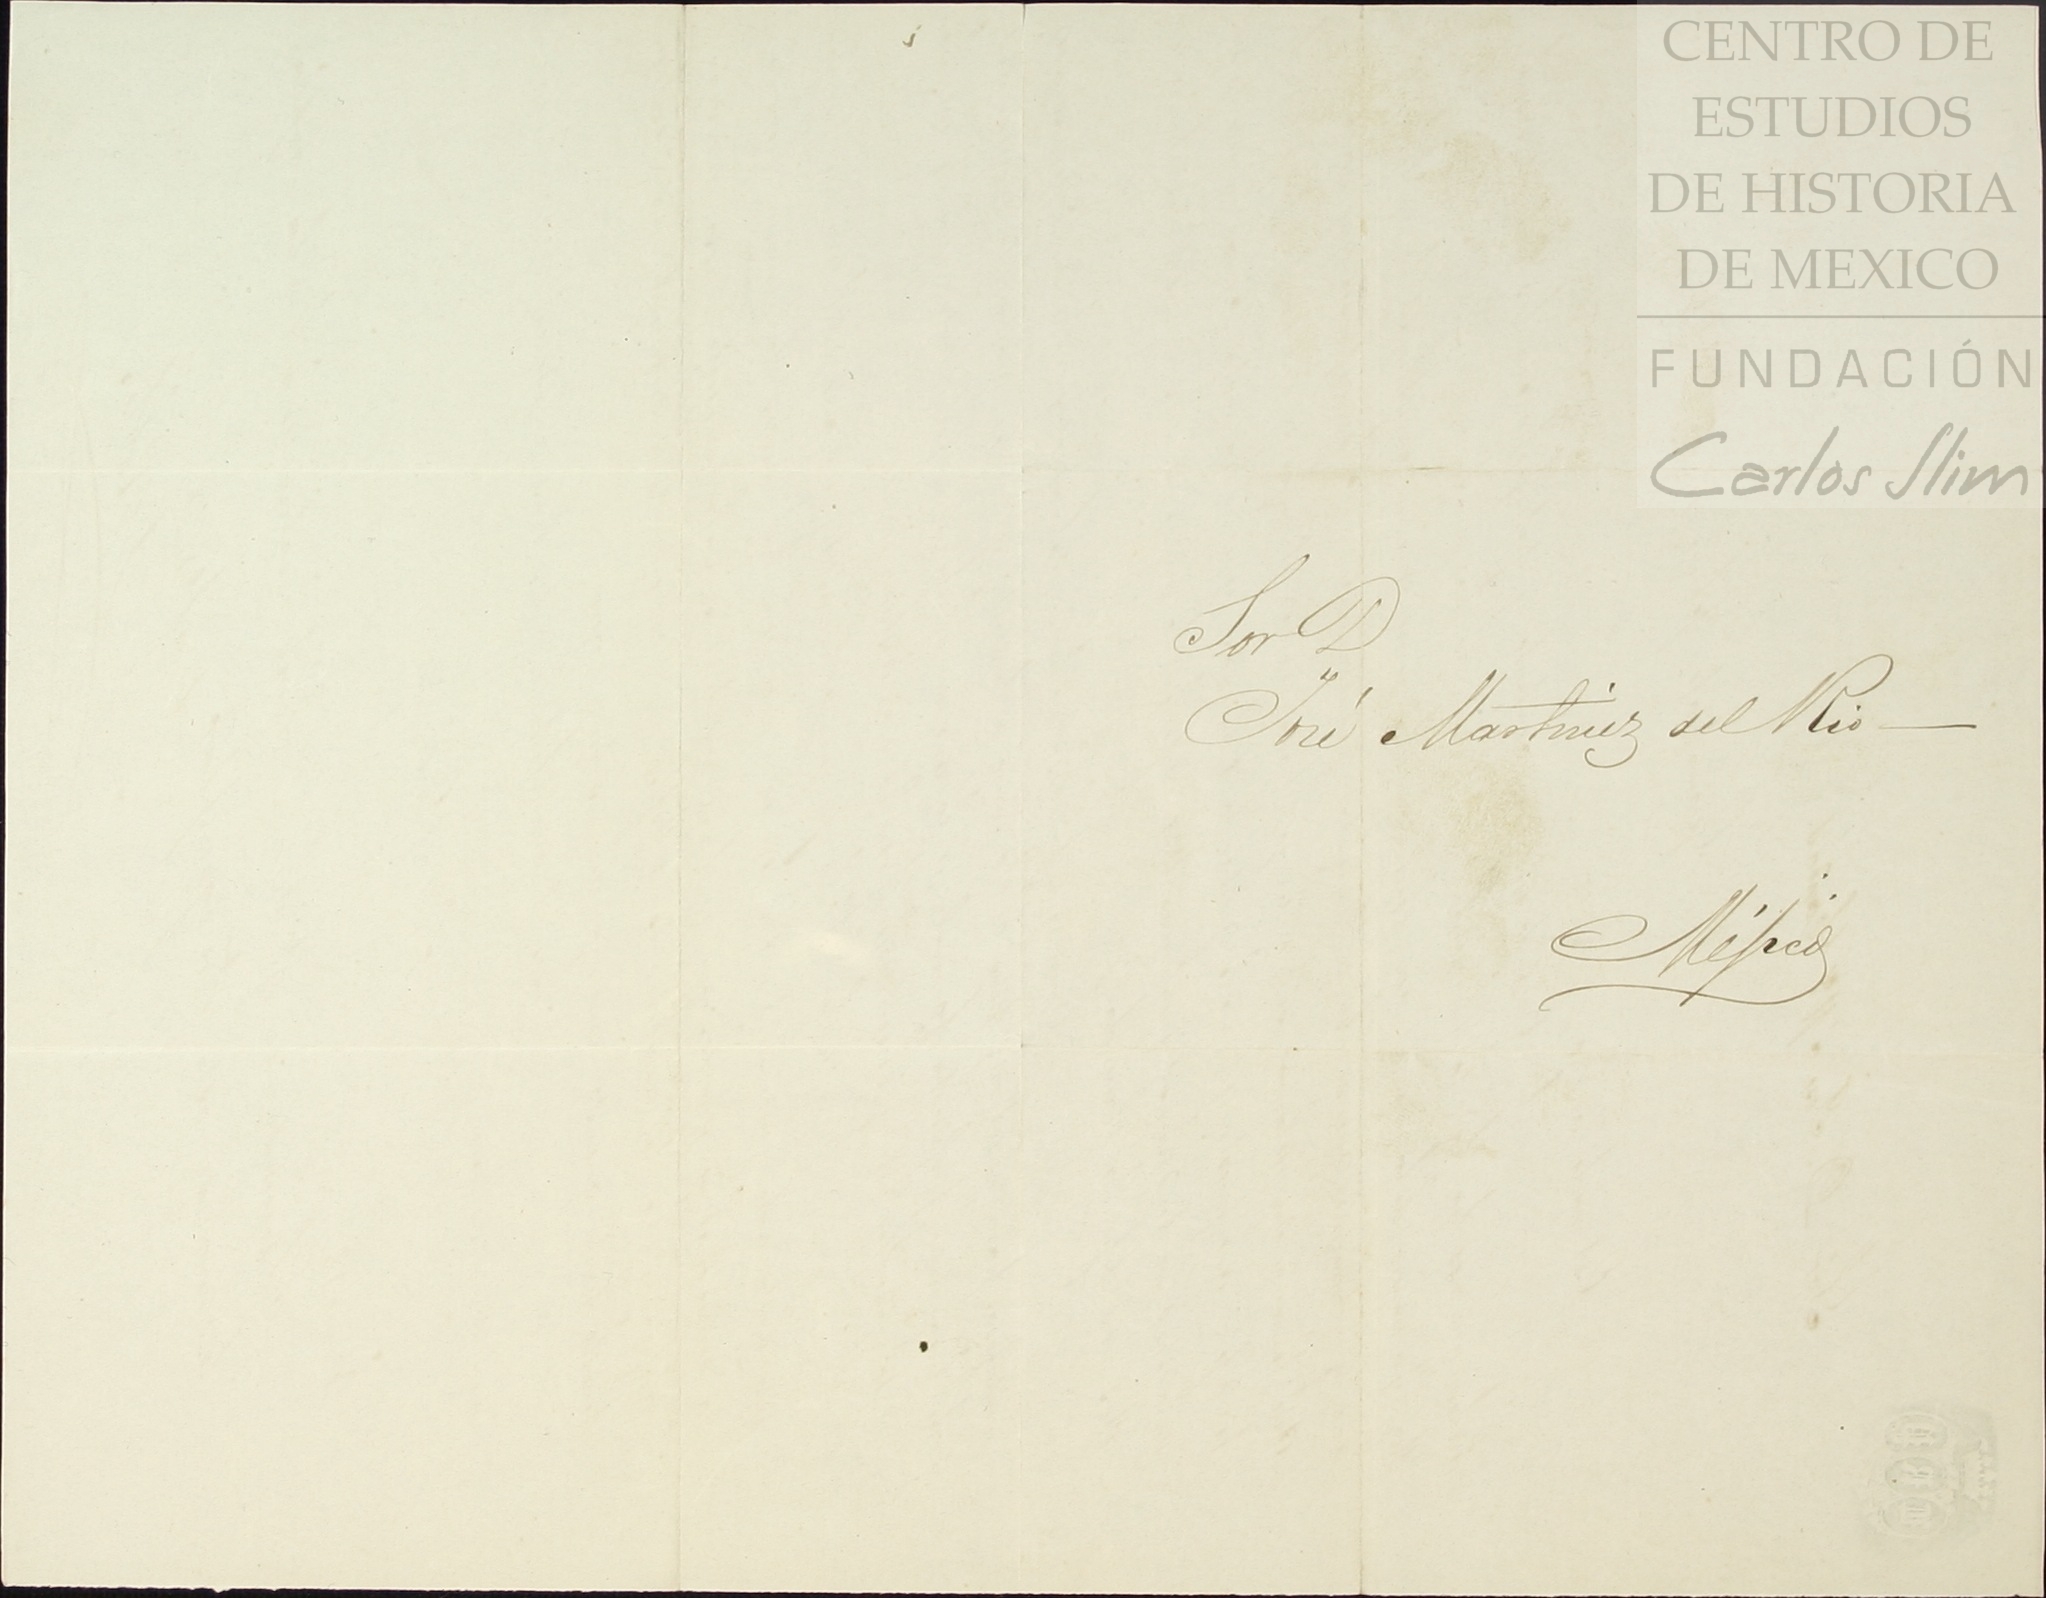 CENTRO DE
ESTUDIOS
DE HISTORIA
DE MEXICO
FUNDACIÓN
Carlos Slim
Sor D
José Martinez del Rio
Méjico